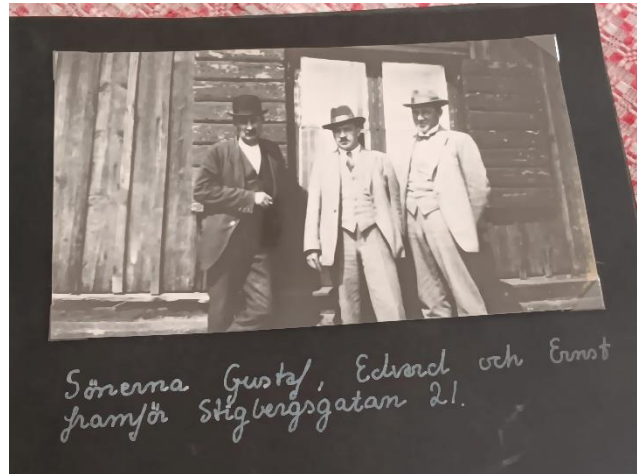 Sönerna Gustaf, Edvard och Ernst
framför Stigbergsgatan 21.